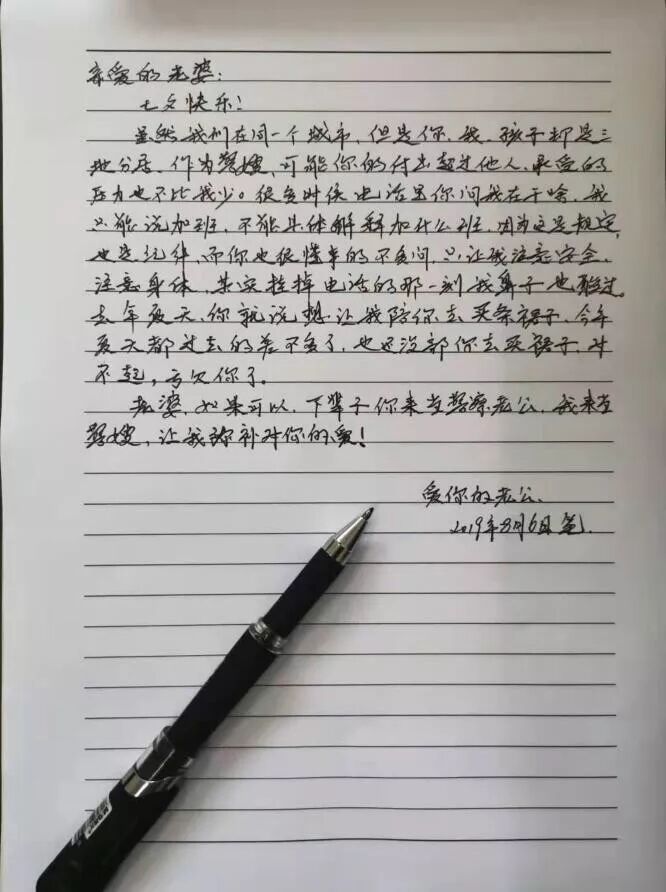 亲爱的老婆：
七夕快乐！
虽然我们在同一个城市，但是你、我、孩子却是三
地分居。作为警嫂，可能你的付出超过他人，承受的
压力也不比我少。很多时候电话里你问我在干啥，我
只能说加班，不能具体解释加什么班，因为这是规定，
也是纪律，而你也很懂事的不多问，只让我注意安全，
注意身体，其实挂掉电话的那一刻我鼻子也酸过。
去年夏天，你就说想让我陪你去买条裙子，今年
夏天都过去的差不多了，也还没部你去买裙子，对
不起，亏欠你了。
老婆，如果可以，下辈子你来当警察老公，我来当
警嫂，让我弥补对你的爱！
爱你的老公、
2019年8月6日